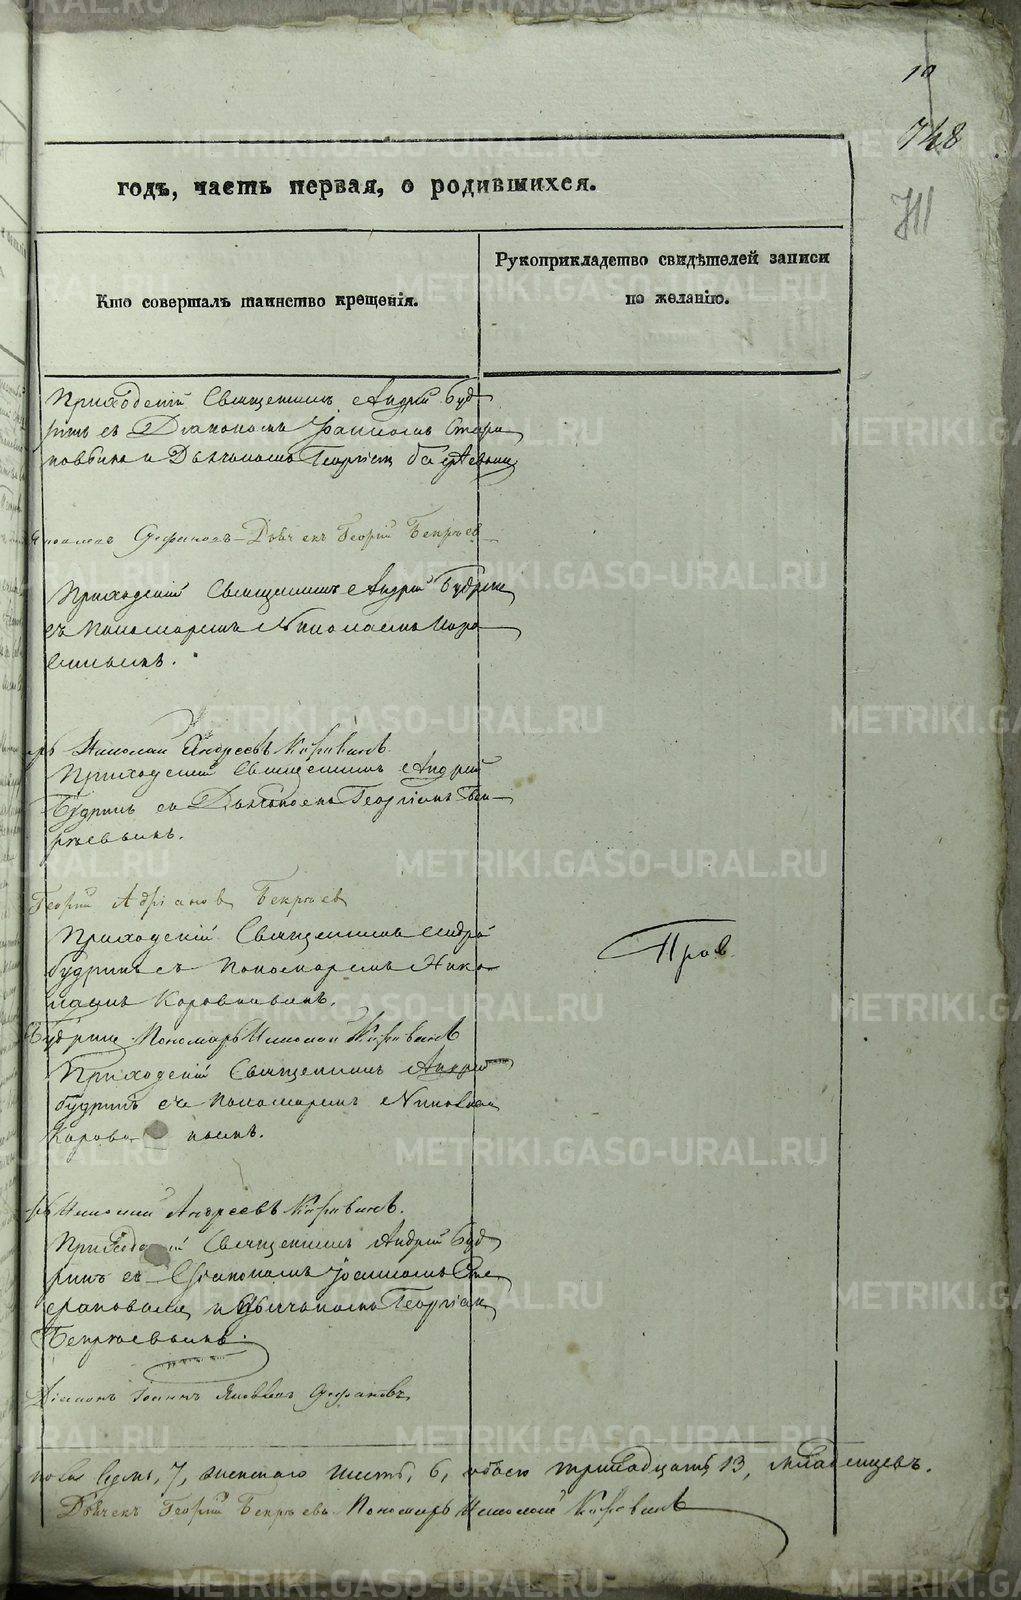 10
748
711
годъ, часть первая, о родившихся.
Кто совершалъ таинство крещенія.
Рукоприкладство свидѣтелей записи
по желанію.
Приходскій Священникъ Андрей Буд
ринъ съ Діакономъ Іоанномъ
и Дьячкомъ Георгіемъ
Дьячекъ Георгій Бекряев
Приходскій Священникъ Андрей Будрин
съ Пономаремъ Николаемъ Коро
виным.
рь Николай Андреевъ Коровинъ
Приходскій Священникъ Андрей
Будринъ съ Дьячкомъ Георгіемъ Бек
ряевымъ.
Георгій Адріанов Бекряев
Приходскій Священникъ Андрей
Будринъ съ Пономаремъ Нико
лаемъ Коровинымъ.
Прав.
Будринъ Пономарь Николай Коровинъ
Приходскій Священникъ Андрей
Будринъ съ Пономаремъ Николаем
Корови нымъ.
рь Николай Андреевъ Коровинъ.
Приходскій Священникъ Андрей Буд
ринъ съ Діакономъ Іоанномъ Сте
фановымъ и Дьячкомъ Георгіем
Бекряевымъ.
Діаконъ Іоаннъ Яковлев Стефановъ
пола семь, 7, женскаго шесть, 6, обоего тринадцать 13, младенцевъ.
Дьячекъ Георгій Бекряевъ Пономарь Николай Коровинъ
METRIKI.GASO-URAL.RU